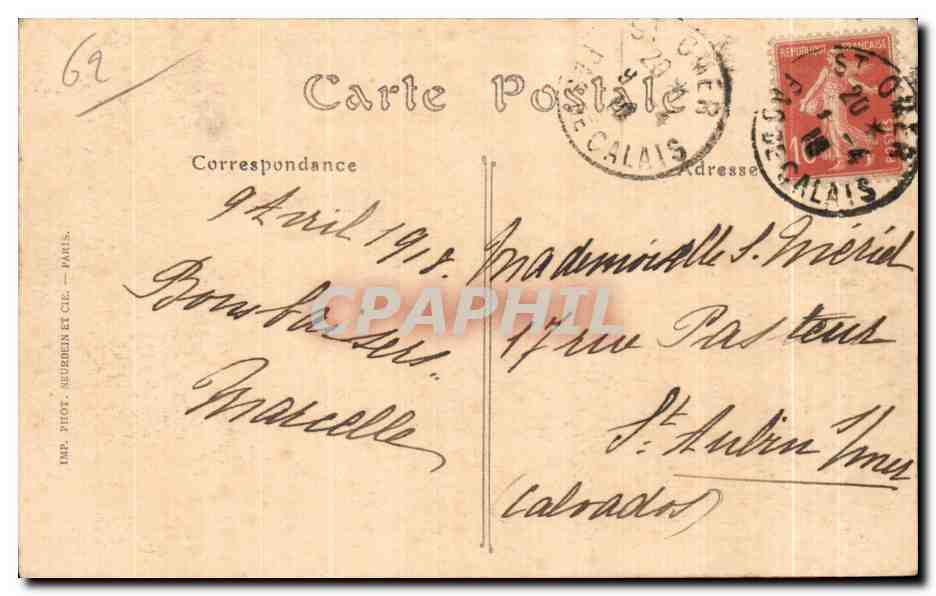 62
Carte Postale
Correspondance
Adresse
ST OMER
20
9
PAS DE CALAIS
REPUBLIQUE FRANÇAISE
POSTES
10
ST OMER
20
4
PAS DE CALAIS
9 Avril 1918.
Bons baisers.
Marcelle
Mademoiselle S. Mériel
17 rue Pasteur
St. Aubin s/mer
(Calvados)
IMP. PHOT. NEURDEIN ET CIE. — PARIS.
CPAPHIL